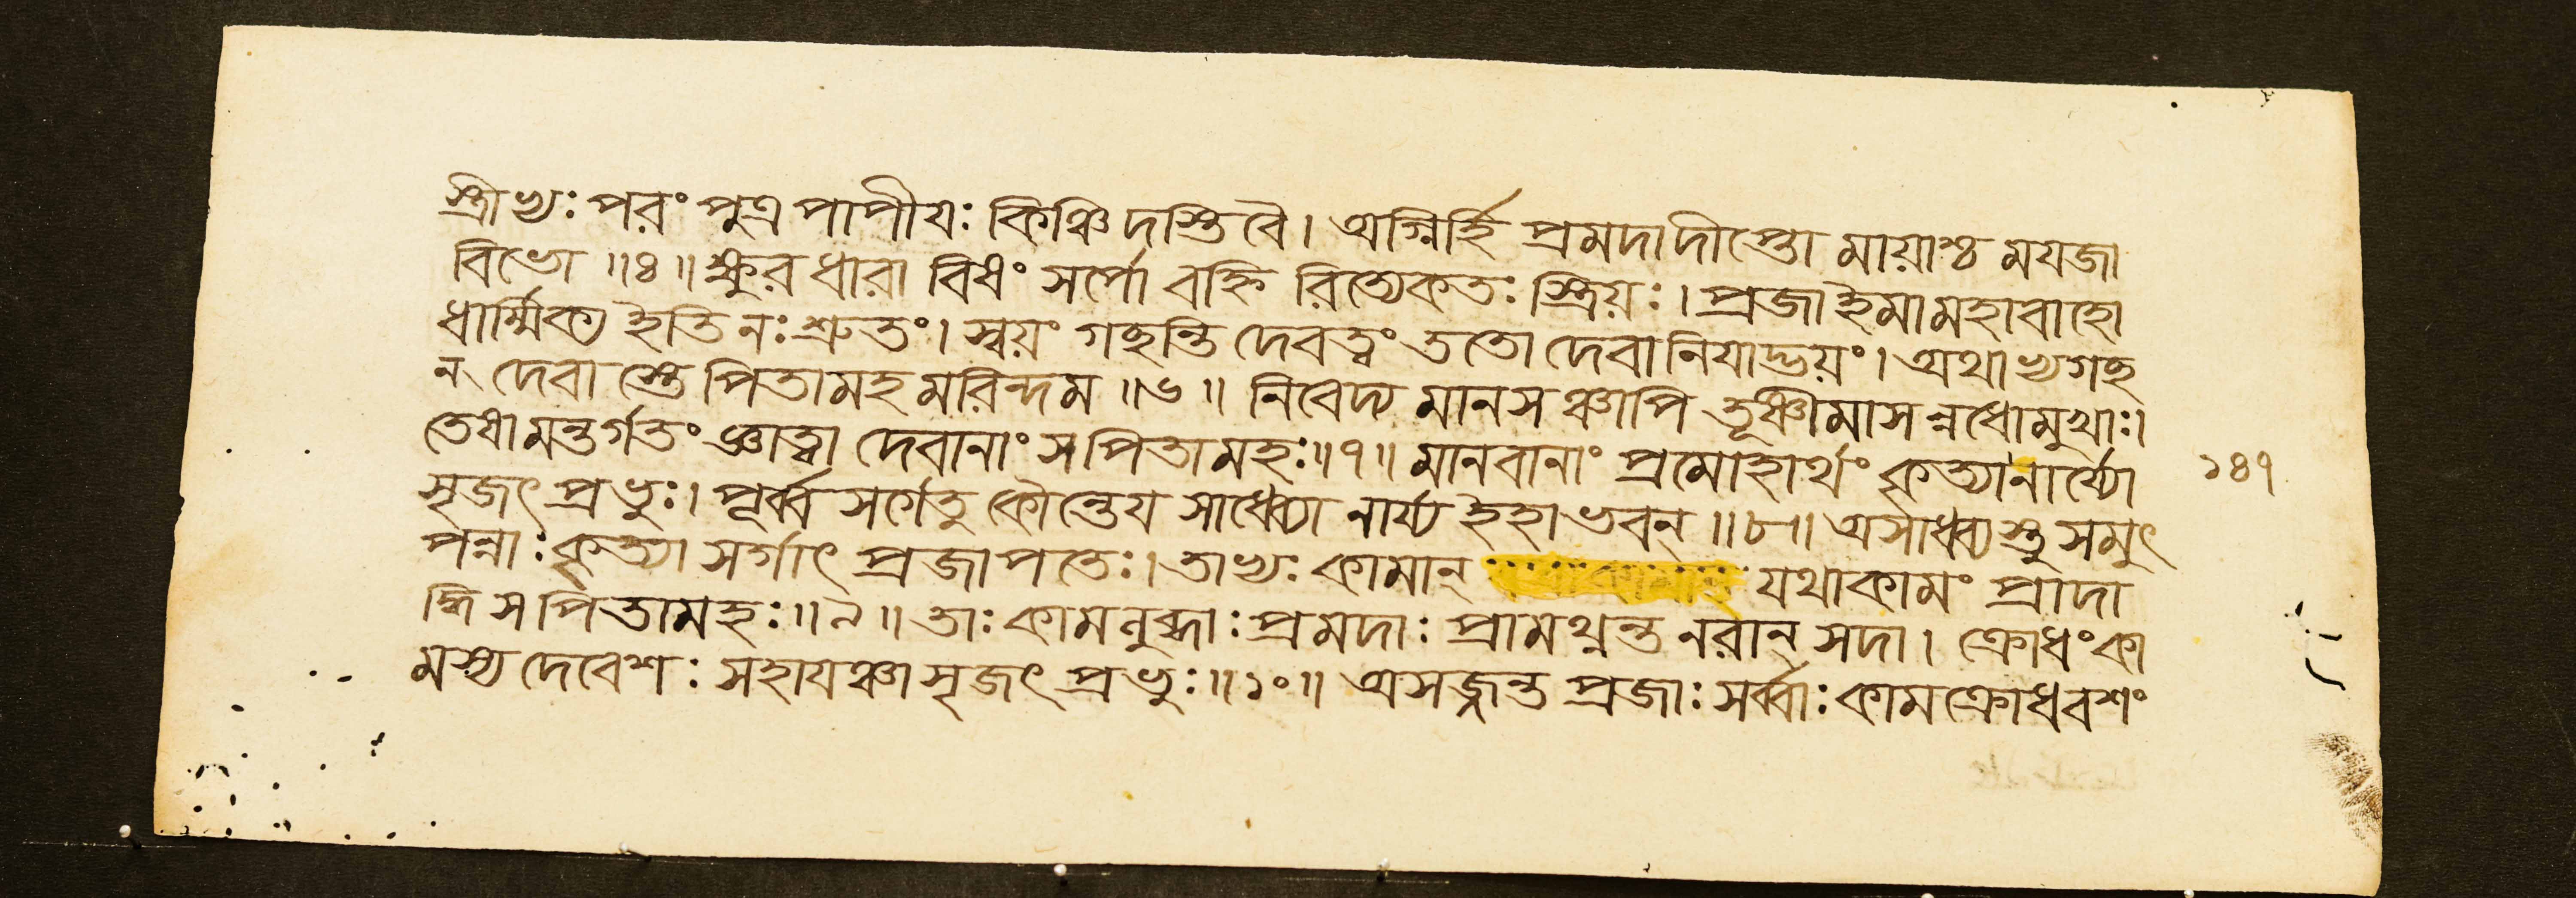 স্ত্রীভ্যঃ পরং পুত্র পাপীযঃ কিঞ্চিদস্তিবৈ। অগ্নির্হি প্রমদাদীপ্তো মায়াশ্চ ময়জা
বিভো ॥৪॥ ক্ষুরধারা বিষং সর্পো বহ্নি রিত্যেকতঃ স্ত্রিয়ঃ। প্রজাইমামহাবাহো
ধার্ম্মিক্য ইতি নঃ শ্রুতং। স্বয়ং গছন্তি দেবত্বং ততো দেবানিযাদ্ভয়ং। অথাভ্যগছ
ন্ দেবা স্তে পিতামহ মরিন্দম ॥৬॥ নিবেদ্য মানসঞ্চাপি তূষ্ণীমাসন্নধোমুখাঃ।
তেষামন্তর্গতং জ্ঞাত্বা দেবানাং সপিতামহঃ॥৭॥ মানবানাং প্রমোহার্থং কৃত্যানার্য্যো
সৃজৎ প্রভুঃ। পূর্ব্ব সর্গেতু কৌন্তেয সাধ্ব্যো নার্য্য ইহাভবন্ ॥৮॥ অসাধ্ব্যস্তু সমুৎ
পন্নাঃ কৃত্যা সর্গাৎ প্রজাপতেঃ। তাভ্যঃ কামান্ যথাকামং প্রাদা
দ্ধি সপিতামহঃ॥৯॥ তাঃ কামলুব্ধাঃ প্রমদাঃ প্রামথ্নন্ত নরান্ সদা। ক্রোধংকা
মস্য দেবেশঃ সহাযঞ্চাসৃজৎ প্রভুঃ॥১০॥ অসজ্জন্ত প্রজাঃ সর্ব্বাঃ কামক্রোধবশং
১৪৭